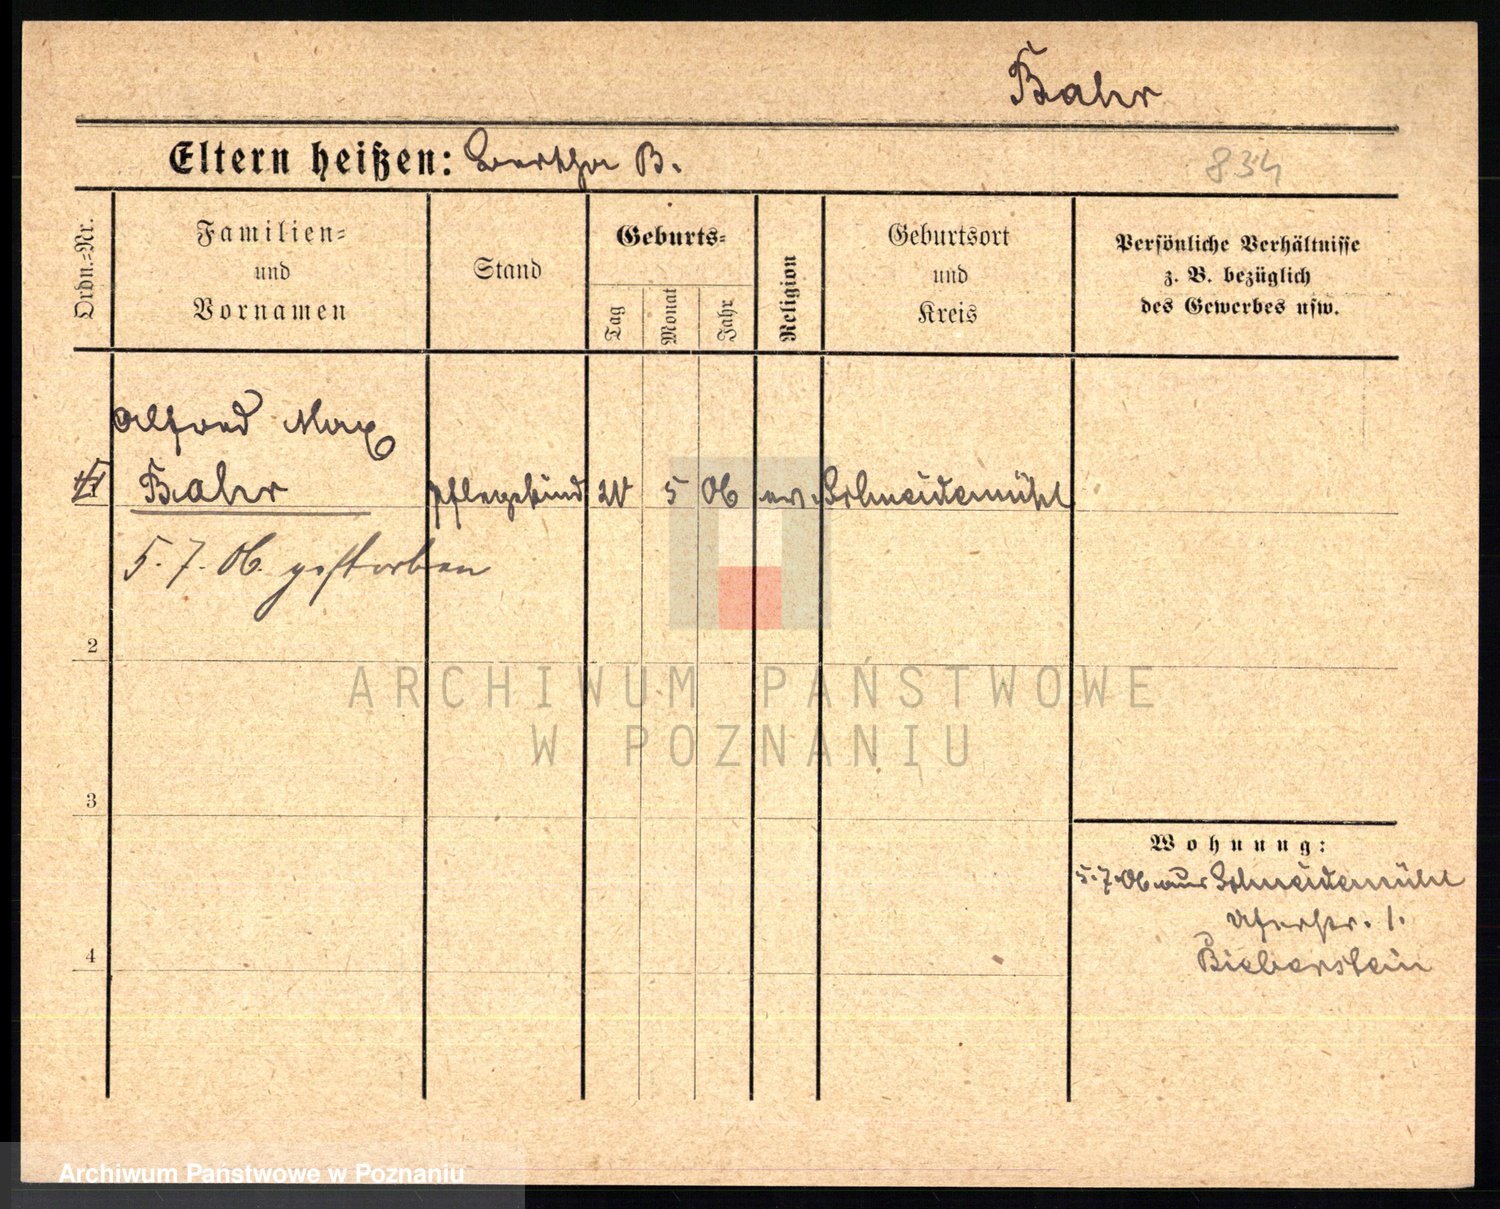 Bahr
Eltern heißen: Bertha B.
834
Ordn.=Nr.
Familien=
und
Vornamen
Stand
Geburts=
Tag
Monat
Jahr
Religion
Geburtsort
und
Kreis
Persönliche Verhältnisse
z. B. bezüglich
des Gewerbes usw.
Alfred Max
Bahr Pflegekind 5 06 ev. Schneidemühl
5. 7. 06. gestorben
2
ARCHIWUM PAŃSTWOWE
W POZNANIU
3
Wohnung:
5.7.06 aus Schneidemühl
1.
Bieberstein
4
Archiwum Państwowe w Poznaniu